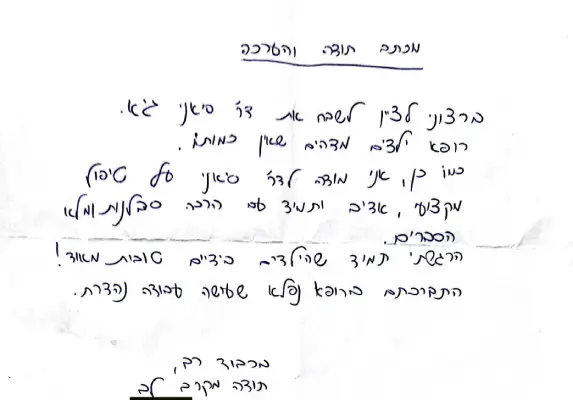 מכתב תודה והערכה
ברצוני לציין לשבח את דר' סיאני ג'א.
רופא ילדים מדהים שאין כמותו.
כמו כן, אני מודה לדר' סיאני על טיפול
מקצועי, אדיב ותמיד עם הרבה סבלנות ומלא
הסברים.
הרגשתי תמיד שהילדים בידיים טובות מאוד!
התברכתם ברופא נפלא שעושה עבודה נהדרת.
בכבוד רב,
תודה מקרב לב